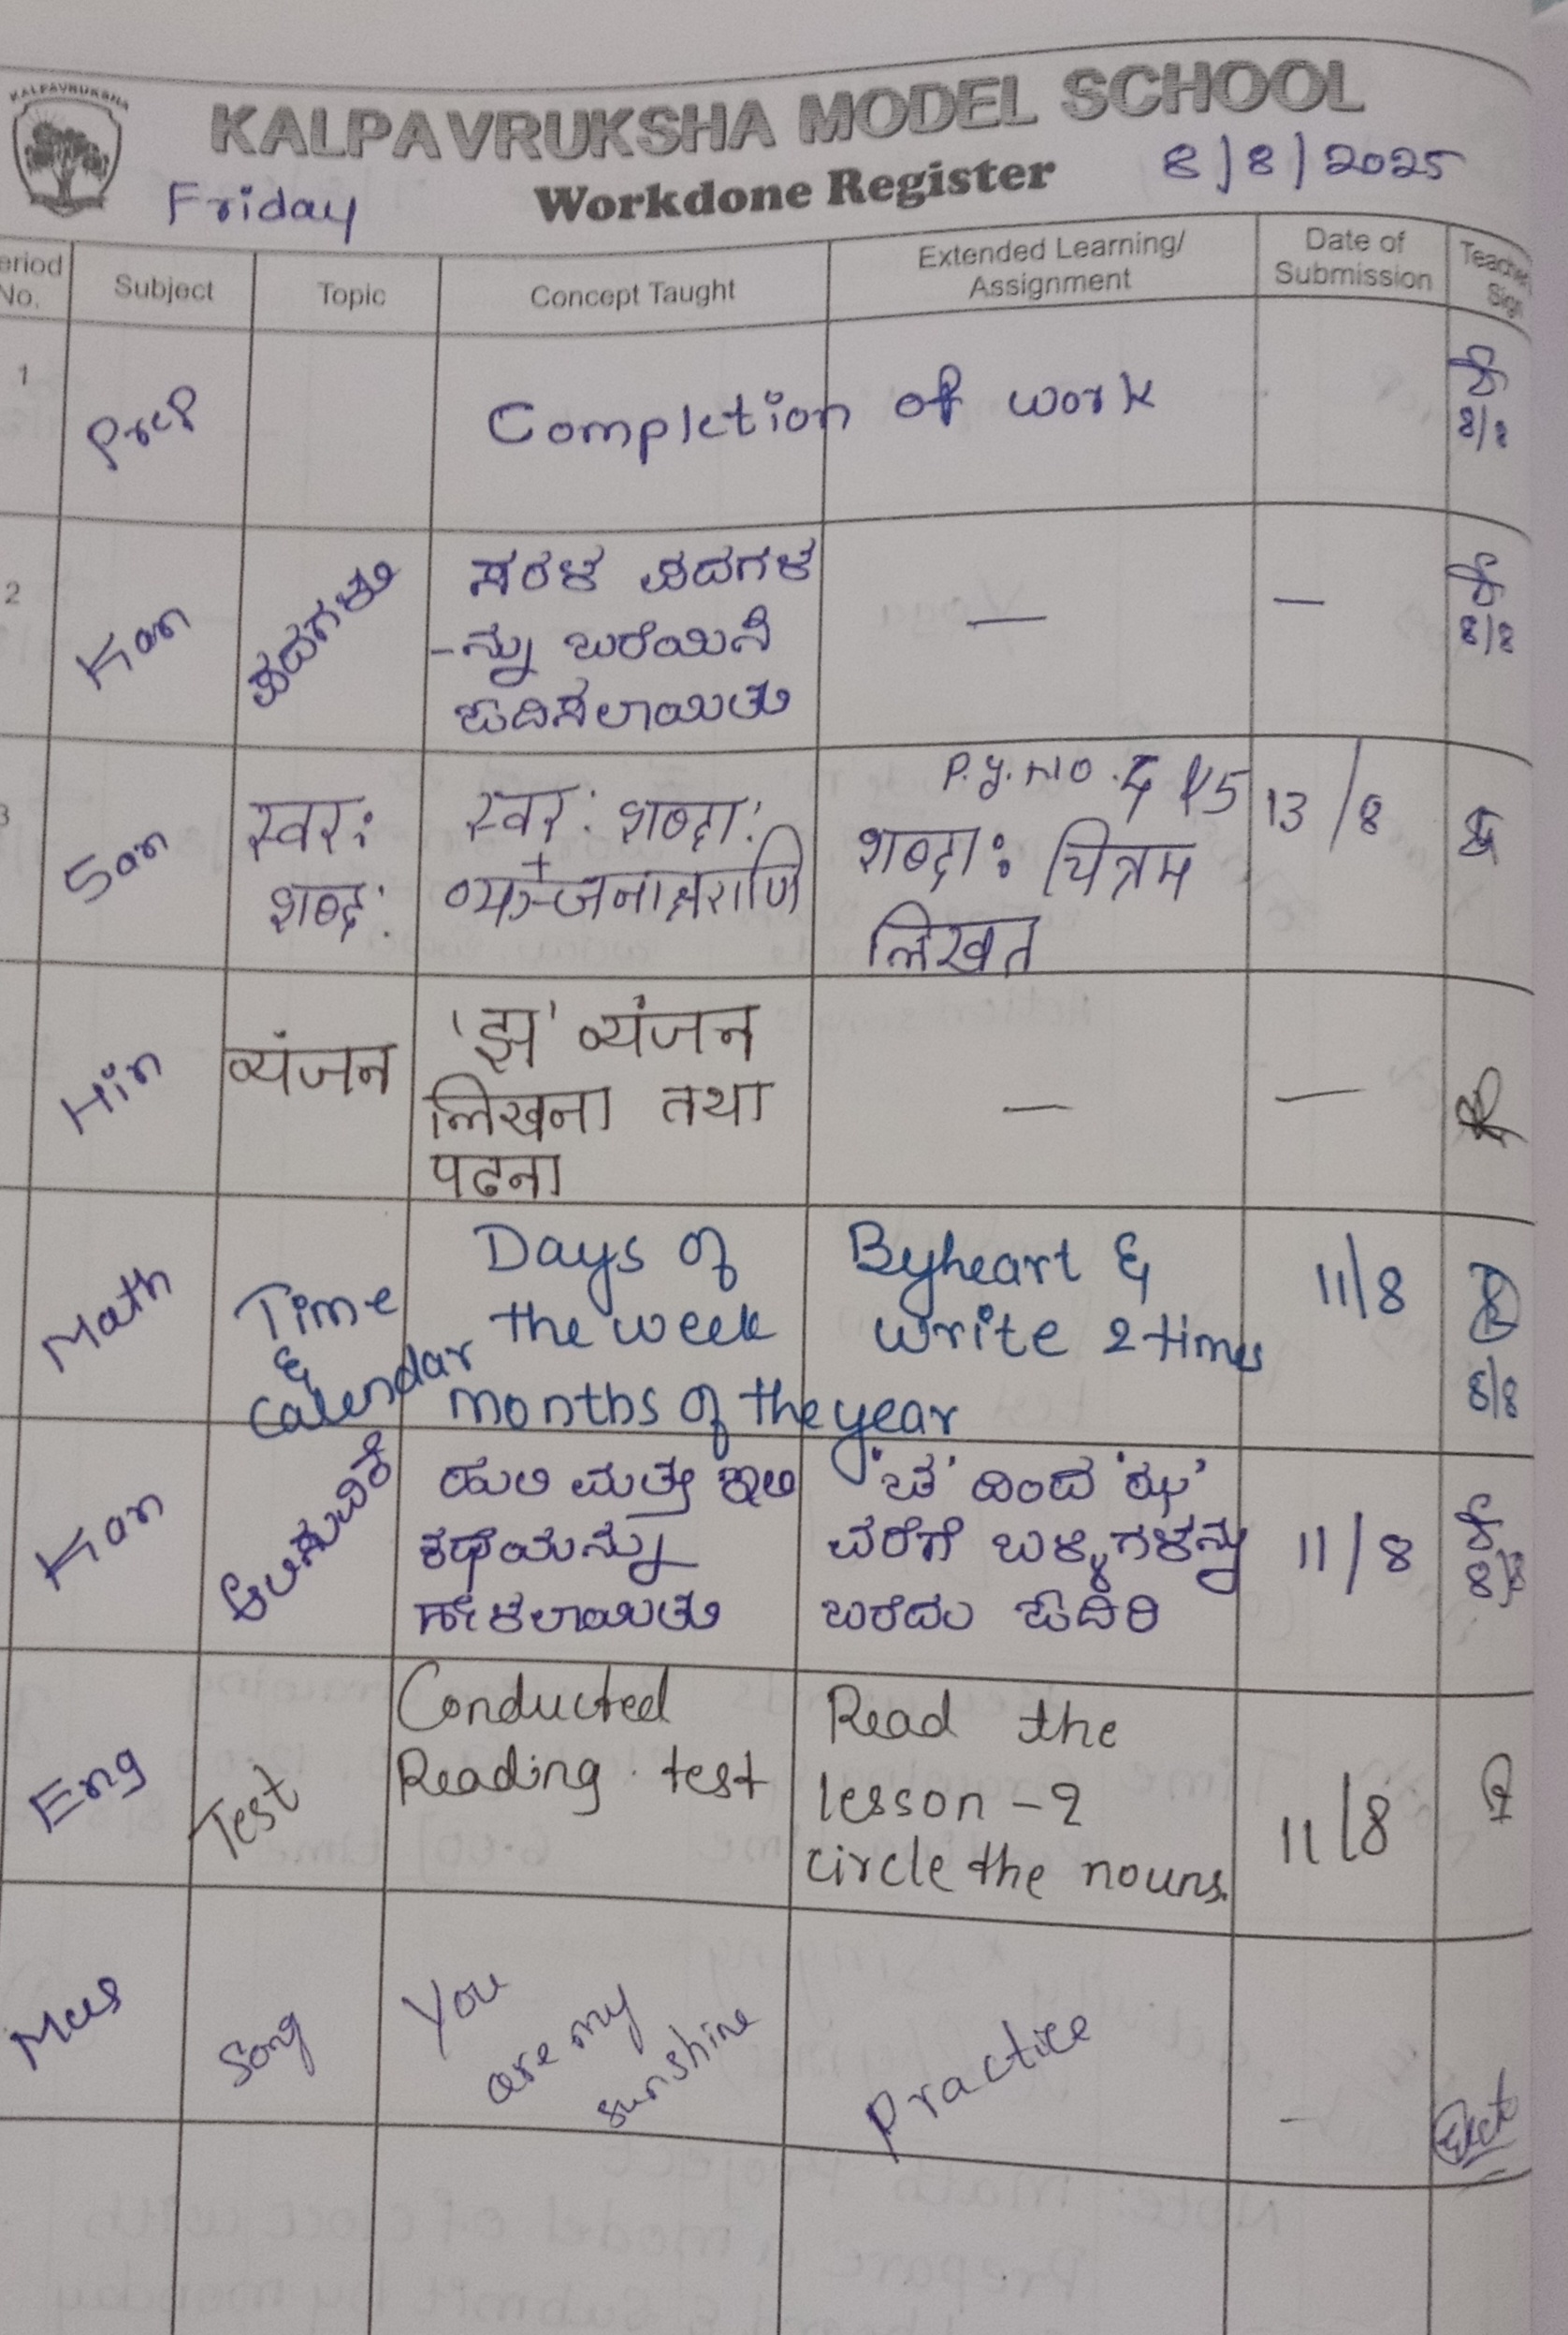 KALPAVRUKSHA
KALPAVRUKSHA MODEL SCHOOL
Friday Workdone Register 8/8/2025
Period No. Subject Topic Concept Taught Extended Learning/ Assignment Date of Submission Teacher Sign
1 Prep Completion of work 8/8
2 Kan ಪದಗಳು ಸರಳ ಪದಗಳ — — 8/8
-ನ್ನು ಬರೆಯಿಸಿ
ಓದಿಸಲಾಯಿತು
3 San स्वर: स्वर: शब्दा: P.g. No. 4 & 5 13/8
शब्द: + शब्दा: चित्रम
व्यञ्जनाक्षराणि लिखत
Hin व्यंजन 'झ' व्यंजन — —
लिखना तथा
पढना
Math Time Days of Byheart & 11/8
& the week write 2 times
Calendar months of the year 8/8
Kan ಆಲಿಸುವಿಕೆ ಹುಲಿ ಮತ್ತು ಇಲಿ 'ಚ' ದಿಂದ 'ಝ' 11/8
ಕಥೆಯನ್ನು ವರೆಗೆ ಬಳ್ಳಿಗಳನ್ನು 8/8
ಹೇಳಲಾಯಿತು ಬರೆದು ಓದಿರಿ
Eng Test Conducted Read the 11/8
Reading test lesson -2
circle the nouns.
Mus Song You Practice —
are my
sunshine